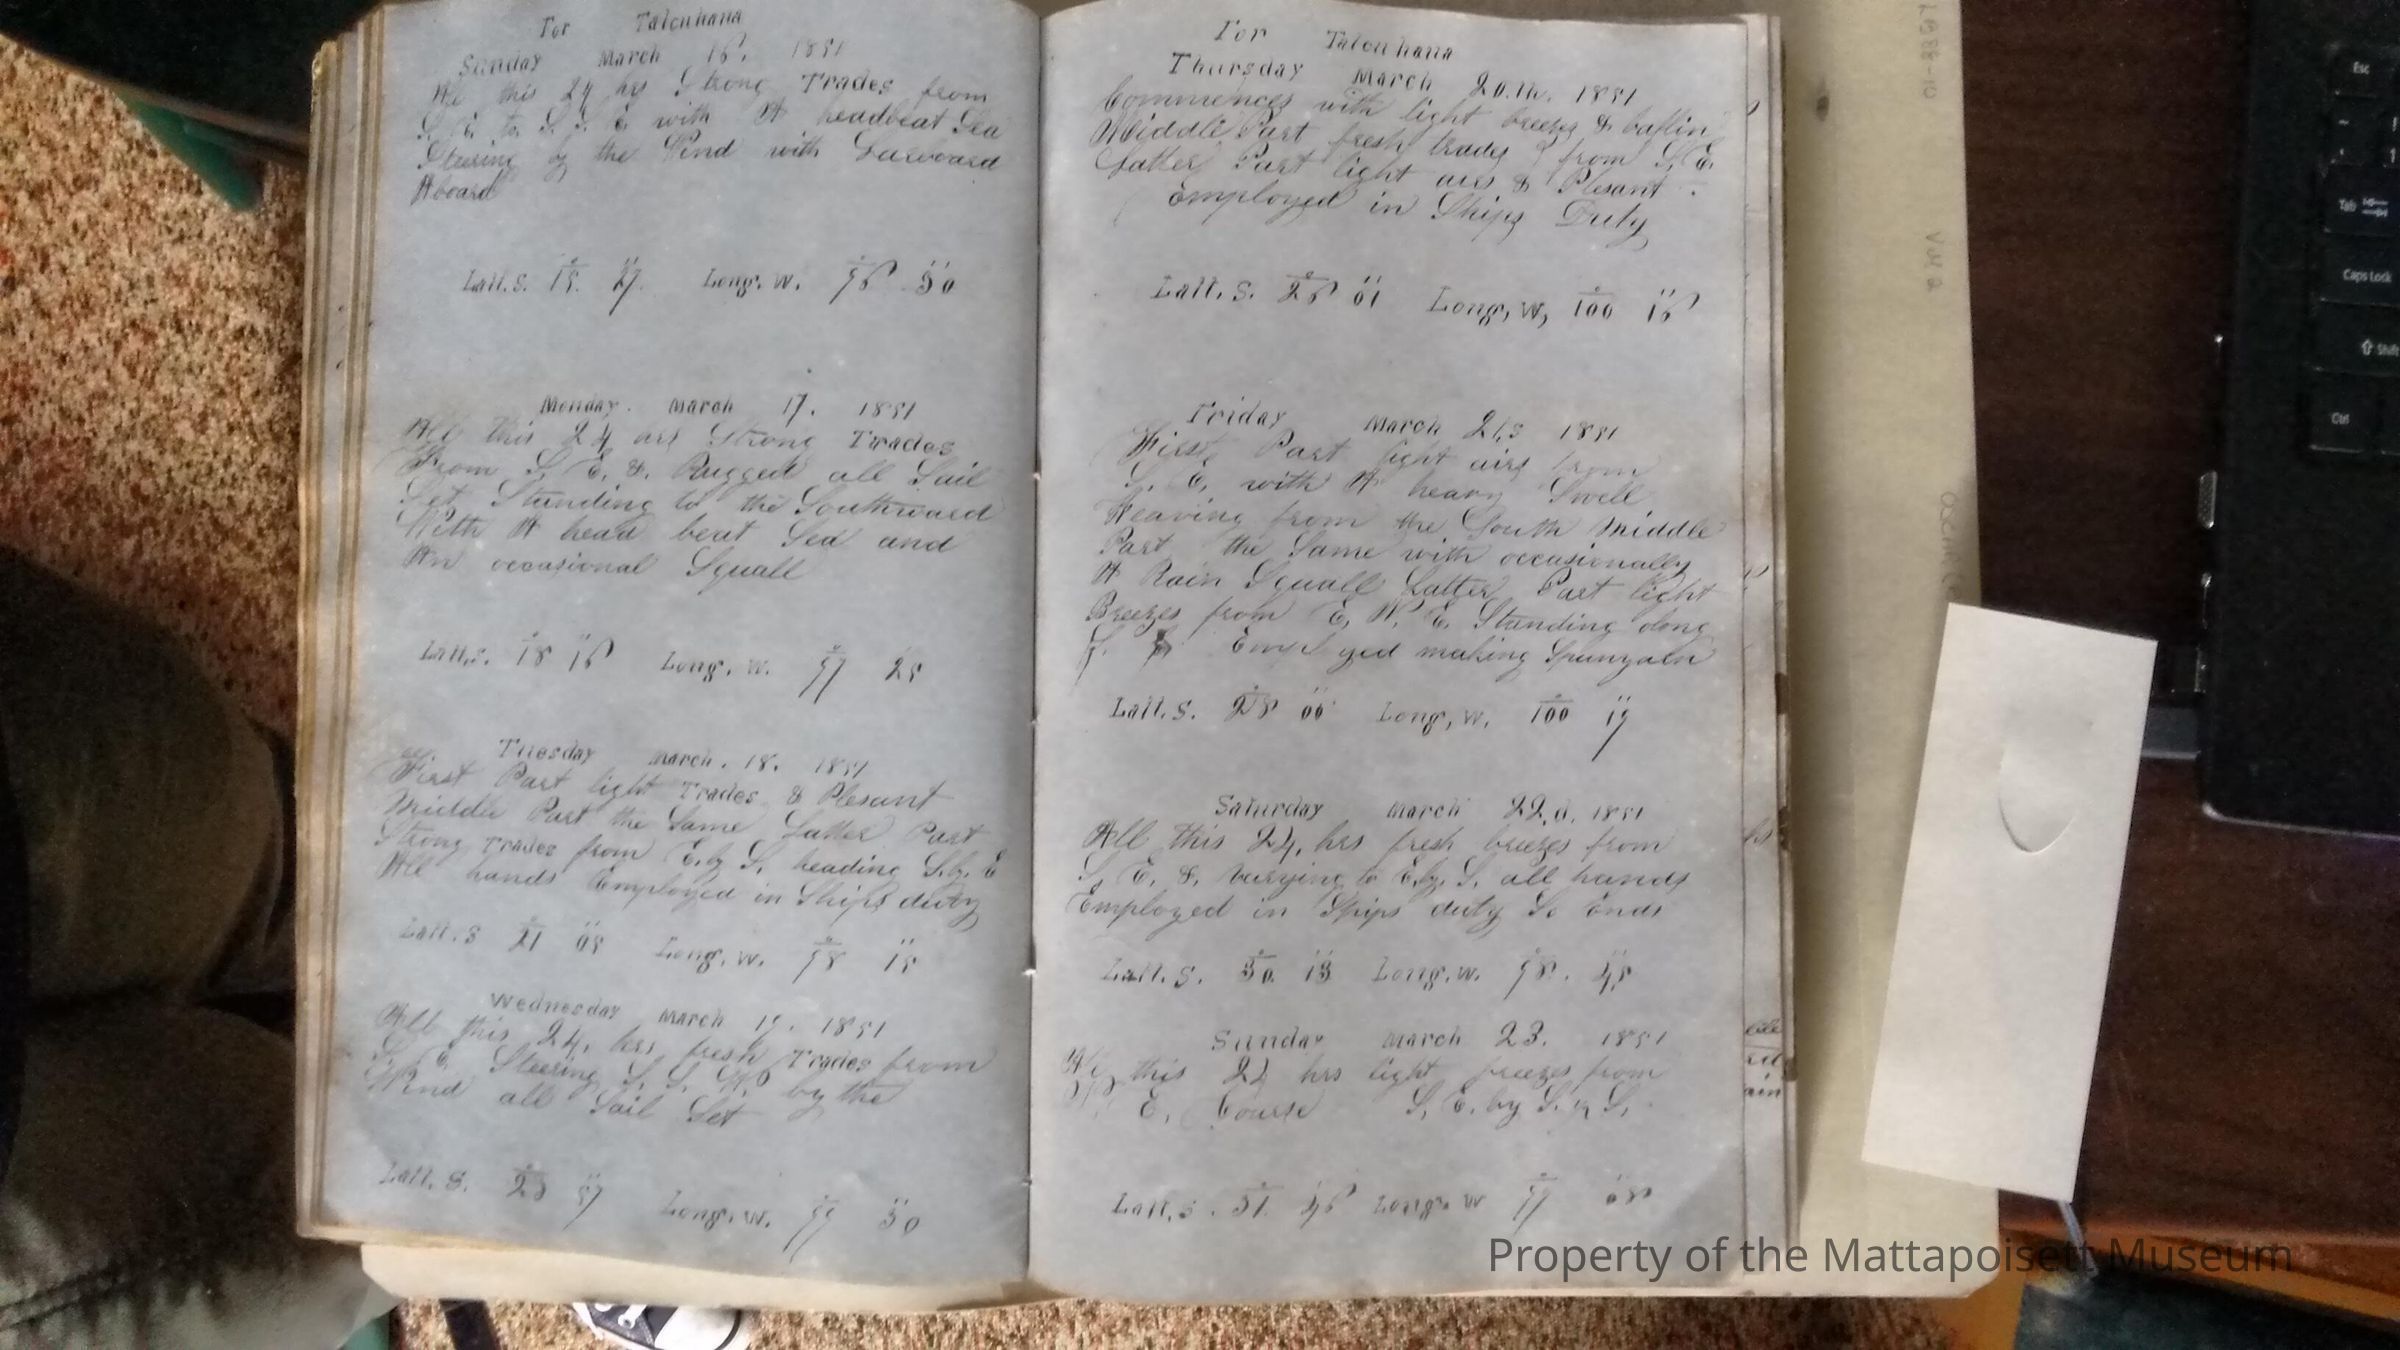 For Talcuhana
Sunday March 16. 1851
All this 24 hrs Strong Trades from
S. E. to S. S. E. with A headbeat Sea
Steering by the Wind with Larboard
Aboard
Latt. S. 15. 27. Long. W. 96 50
Monday. March 17. 1851
All this 24 hrs Strong Trades
From S. E. &. Rugged all Sail
Set Standing to the Southward
With A head beat Sea and
An occasional Squall
Latt. S. 18 16 Long. W. 97 25
Tuesday March. 18. 1851
First Part light Trades & Plesant
Middle Part the Same Latter Part
Strong Trades from E. by S. heading S. by. E
All hands Employed in Ships duty
Latt. S 21 05 Long. W. 98 15
Wednesday March 19. 1851
All this 24, hrs fresh Trades from
S. E. Steering S. S. W. by the
Wind all Sail Set
Latt. S. 23 57 Long. W. 99 30
For Talcuhana
Thursday March 20.th. 1851
Commences with light breezes & baflin
Middle Part fresh trades from S. E.
Latter Part light airs & Plesant
Employed in Ships Duty
Latt. S. 26 01 Long, W, 100 16
Friday March 21,s 1851
First Part light airs from
S. E. with A heavy Swell
Heaving from the South Middle
Part the Same with occasionally
A Rain Squall Latter Part light
Breezes from E. N. E. Standing along
S. Employed making Spunyarn
Latt. S. 28 00 Long, W. 100 19
Saturday March 22,d. 1851
All this 24, hrs fresh breezes from
S. E. &. Varying to E. by. S. all hands
Employed in Ships duty So Ends
Latt. S. 30. 13 Long. W. 98. 45
Sunday March 23. 1851
All this 24 hrs light breezes from
N. E. Course S. E. by S. 1/2 S.
Latt. S. 31. 46 Long. W 97 08
Property of the Mattapoisett Museum
Esc
Tab
Caps Lock
Shift
Ctrl